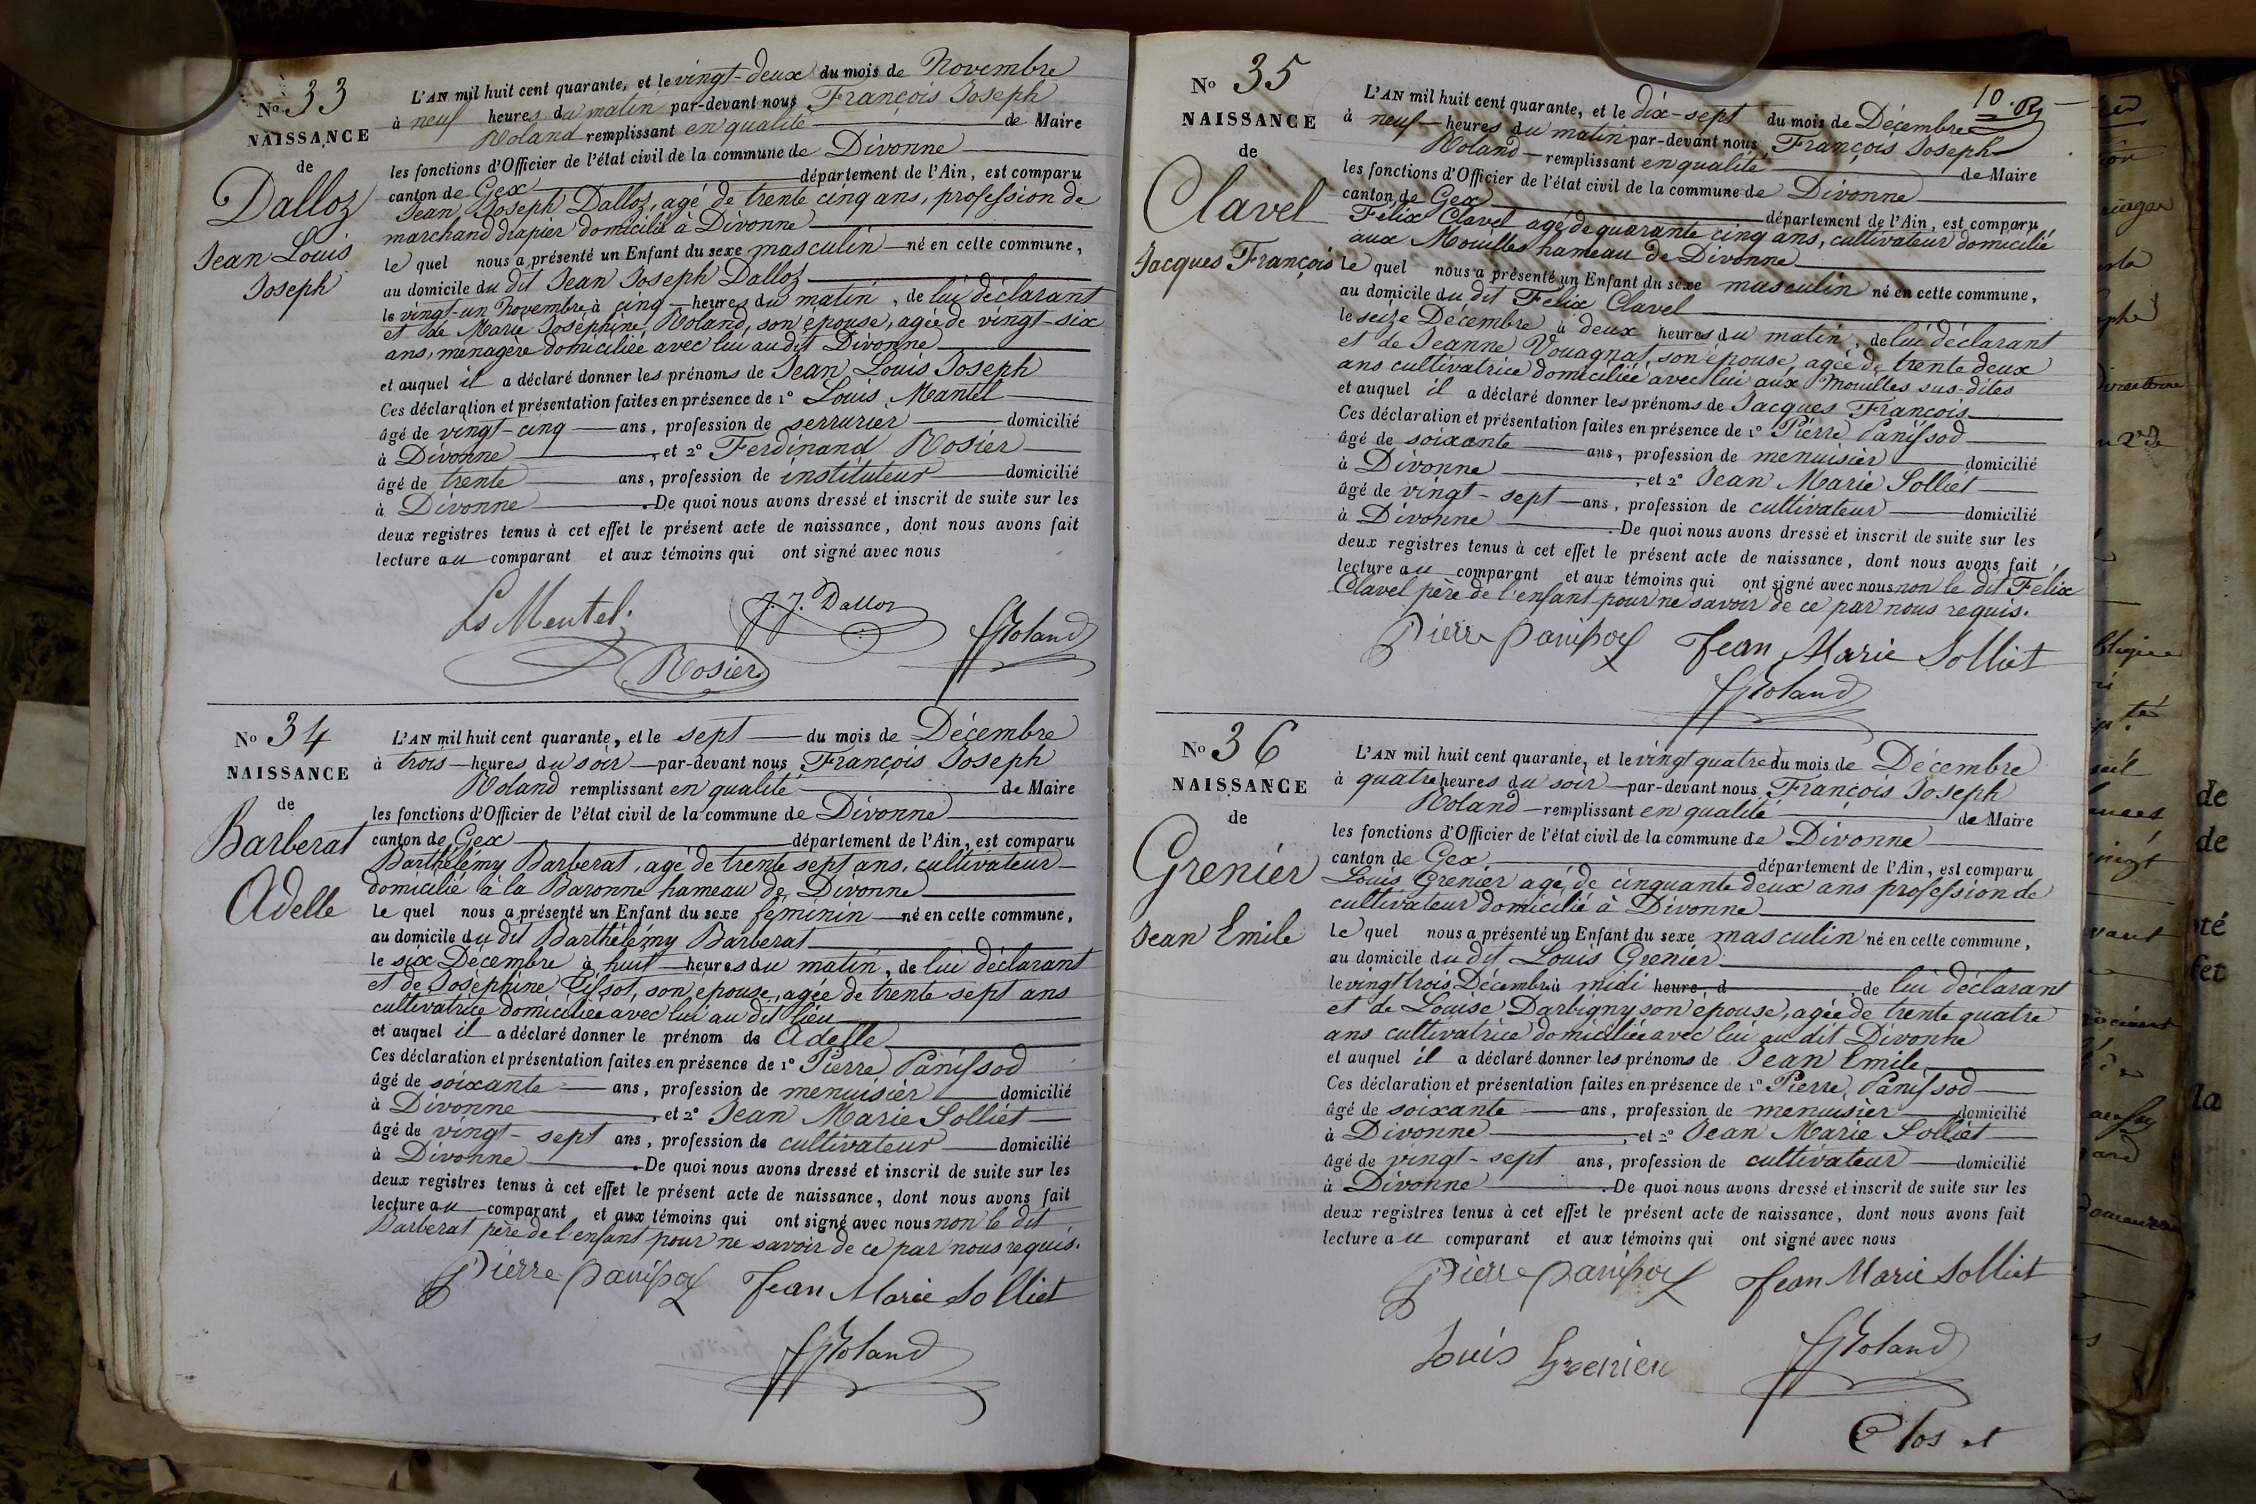 N° 33
NAISSANCE
de
Dalloz
Jean Louis
Joseph
L'AN mil huit cent quarante, et le vingt-deux du mois de Novembre
à neuf heures du matin par-devant nous François Joseph
Roland remplissant en qualité de Maire
les fonctions d'Officier de l'état civil de la commune de Divonne
canton de Gex département de l'Ain, est comparu
Jean Joseph Dalloz, agé de trente cinq ans, profession de
marchand drapier domicilié à Divonne
le quel nous a présenté un Enfant du sexe masculin né en cette commune,
au domicile du dit Jean Joseph Dalloz
le vingt-un Novembre à cinq heures du matin, de lui déclarant
et de Marie Joséphine Roland, son épouse, agée de vingt-six
ans, menagère domiciliée avec lui au dit Divonne
et auquel il a déclaré donner les prénoms de Jean Louis Joseph
Ces déclaration et présentation faites en présence de 1° Louis Mantel
âgé de vingt-cinq ans, profession de serrurier domicilié
à Divonne, et 2° Ferdinand Rosier
âgé de trente ans, profession de instituteur domicilié
à Divonne. De quoi nous avons dressé et inscrit de suite sur les
deux registres tenus à cet effet le présent acte de naissance, dont nous avons fait
lecture au comparant et aux témoins qui ont signé avec nous
Ls Mentel J. J. Dalloz
Rosier JfRoland
N° 34
NAISSANCE
de
Barberat
Adelle
L'AN mil huit cent quarante, et le sept du mois de Décembre
à trois heures du soir par-devant nous François Joseph
Roland remplissant en qualité de Maire
les fonctions d'Officier de l'état civil de la commune de Divonne
canton de Gex département de l'Ain, est comparu
Barthélémy Barberat, agé de trente sept ans, cultivateur
domicilié à la Baronne hameau de Divonne
le quel nous a présenté un Enfant du sexe féminin né en cette commune,
au domicile du dit Barthélémy Barberat
le six Décembre à huit heures du matin, de lui déclarant
et de Joséphine Tissot, son épouse, agée de trente sept ans
cultivatrice domiciliée avec lui au dit lieu
et auquel il a déclaré donner le prénom de Adelle
Ces déclaration et présentation faites en présence de 1° Pierre Panissod
âgé de soixante ans, profession de menuisier domicilié
à Divonne, et 2° Jean Marie Solliet
âgé de vingt-sept ans, profession de cultivateur domicilié
à Divonne. De quoi nous avons dressé et inscrit de suite sur les
deux registres tenus à cet effet le présent acte de naissance, dont nous avons fait
lecture au comparant et aux témoins qui ont signé avec nous non le dit
Barberat père de l'enfant pour ne savoir de ce par nous requis.
Pierre Panissod Jean Marie Solliet
JfRoland
10.
N° 35
NAISSANCE
de
Clavel
Jacques François
L'AN mil huit cent quarante, et le dix-sept du mois de Décembre
à neuf heures du matin par-devant nous François Joseph
Roland remplissant en qualité de Maire
les fonctions d'Officier de l'état civil de la commune de Divonne
canton de Gex département de l'Ain, est comparu
Félix Clavel agé de quarante cinq ans, cultivateur domicilié
aux Mouilles hameau de Divonne
le quel nous a présenté un Enfant du sexe masculin né en cette commune,
au domicile du dit Félix Clavel
le seize Décembre à deux heures du matin, de lui déclarant
et de Jeanne Vouagnat, son épouse, agée de trente deux
ans cultivatrice domiciliée avec lui aux Mouilles sus-dites
et auquel il a déclaré donner les prénoms de Jacques François
Ces déclaration et présentation faites en présence de 1° Pierre Panissod
âgé de soixante ans, profession de menuisier domicilié
à Divonne, et 2° Jean Marie Solliet
âgé de vingt-sept ans, profession de cultivateur domicilié
à Divonne. De quoi nous avons dressé et inscrit de suite sur les
deux registres tenus à cet effet le présent acte de naissance, dont nous avons fait
lecture au comparant et aux témoins qui ont signé avec nous non le dit Félix
Clavel père de l'enfant pour ne savoir de ce par nous requis.
Pierre Panissod Jean Marie Solliet
JfRoland
N° 36
NAISSANCE
de
Grenier
Jean Emile
L'AN mil huit cent quarante, et le vingt quatre du mois de Décembre
à quatre heures du soir par-devant nous François Joseph
Roland remplissant en qualité de Maire
les fonctions d'Officier de l'état civil de la commune de Divonne
canton de Gex département de l'Ain, est comparu
Louis Grenier agé de cinquante deux ans profession de
cultivateur domicilié à Divonne
le quel nous a présenté un Enfant du sexe masculin né en cette commune,
au domicile du dit Louis Grenier
le vingt trois Décembre à midi heure d de lui déclarant
et de Louise Darbigny son épouse, agée de trente quatre
ans cultivatrice domiciliée avec lui au dit Divonne
et auquel il a déclaré donner les prénoms de Jean Emile
Ces déclaration et présentation faites en présence de 1° Pierre Panissod
âgé de soixante ans, profession de menuisier domicilié
à Divonne, et 2° Jean Marie Solliet
âgé de vingt-sept ans, profession de cultivateur domicilié
à Divonne. De quoi nous avons dressé et inscrit de suite sur les
deux registres tenus à cet effet le présent acte de naissance, dont nous avons fait
lecture au comparant et aux témoins qui ont signé avec nous
Pierre Panissod Jean Marie Solliet
Louis Grenier JfRoland
Clos et